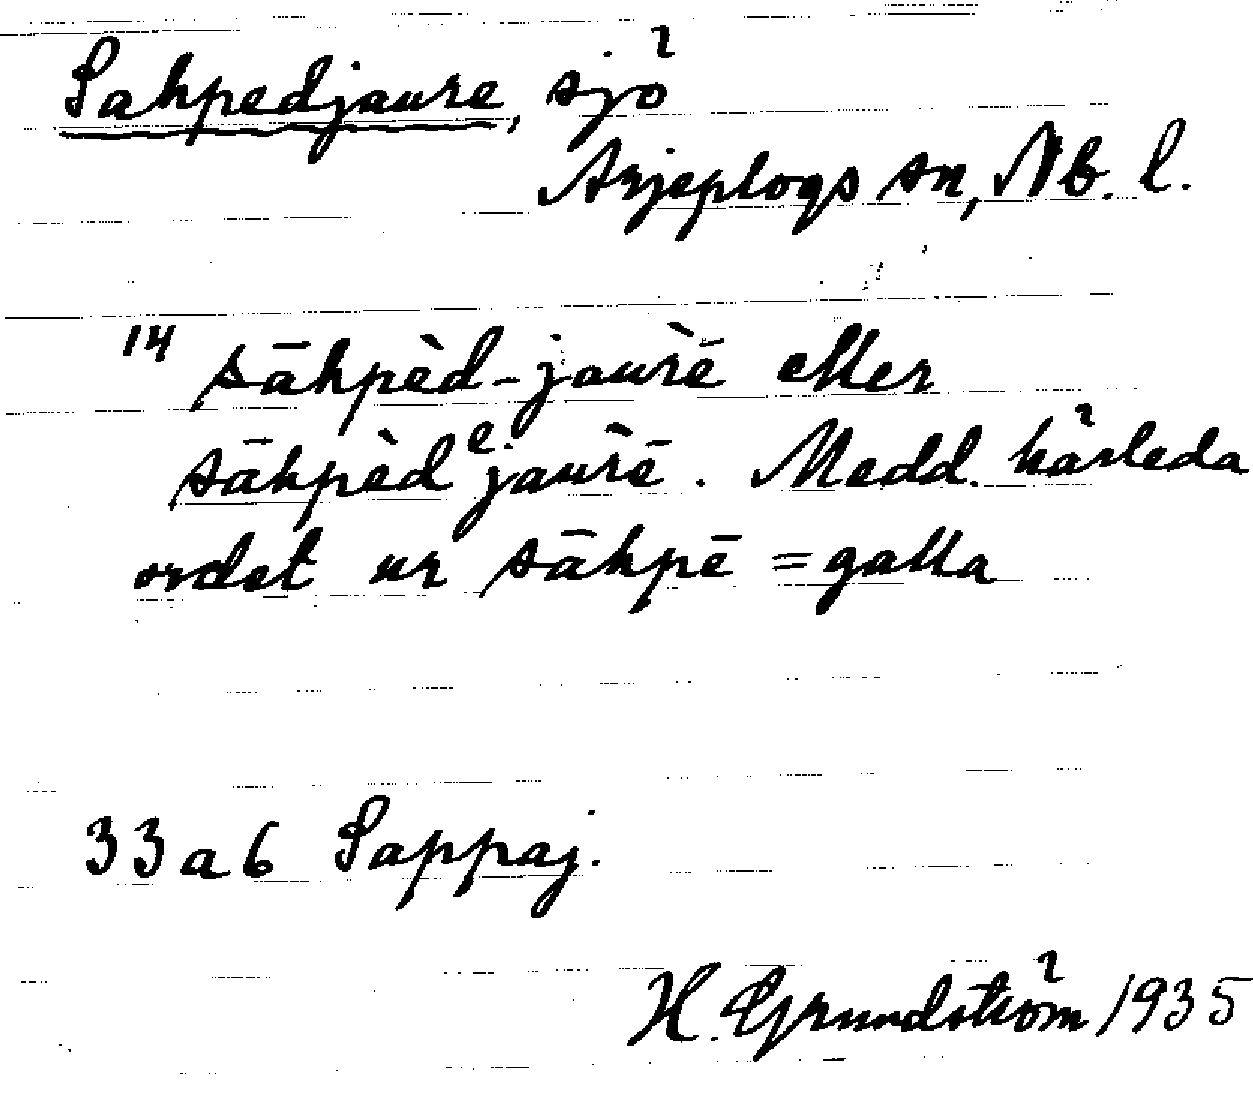 Sahpedjaure, sjö
Arjeplogs sn, Nb. l.
14 sāhpèd-jaùrē eller
sāhpèdᵉjaùrē. Medd. härleda
ordet ur sāhpē = galla
33 a 6 Sappaj.
H. Grundström 1935